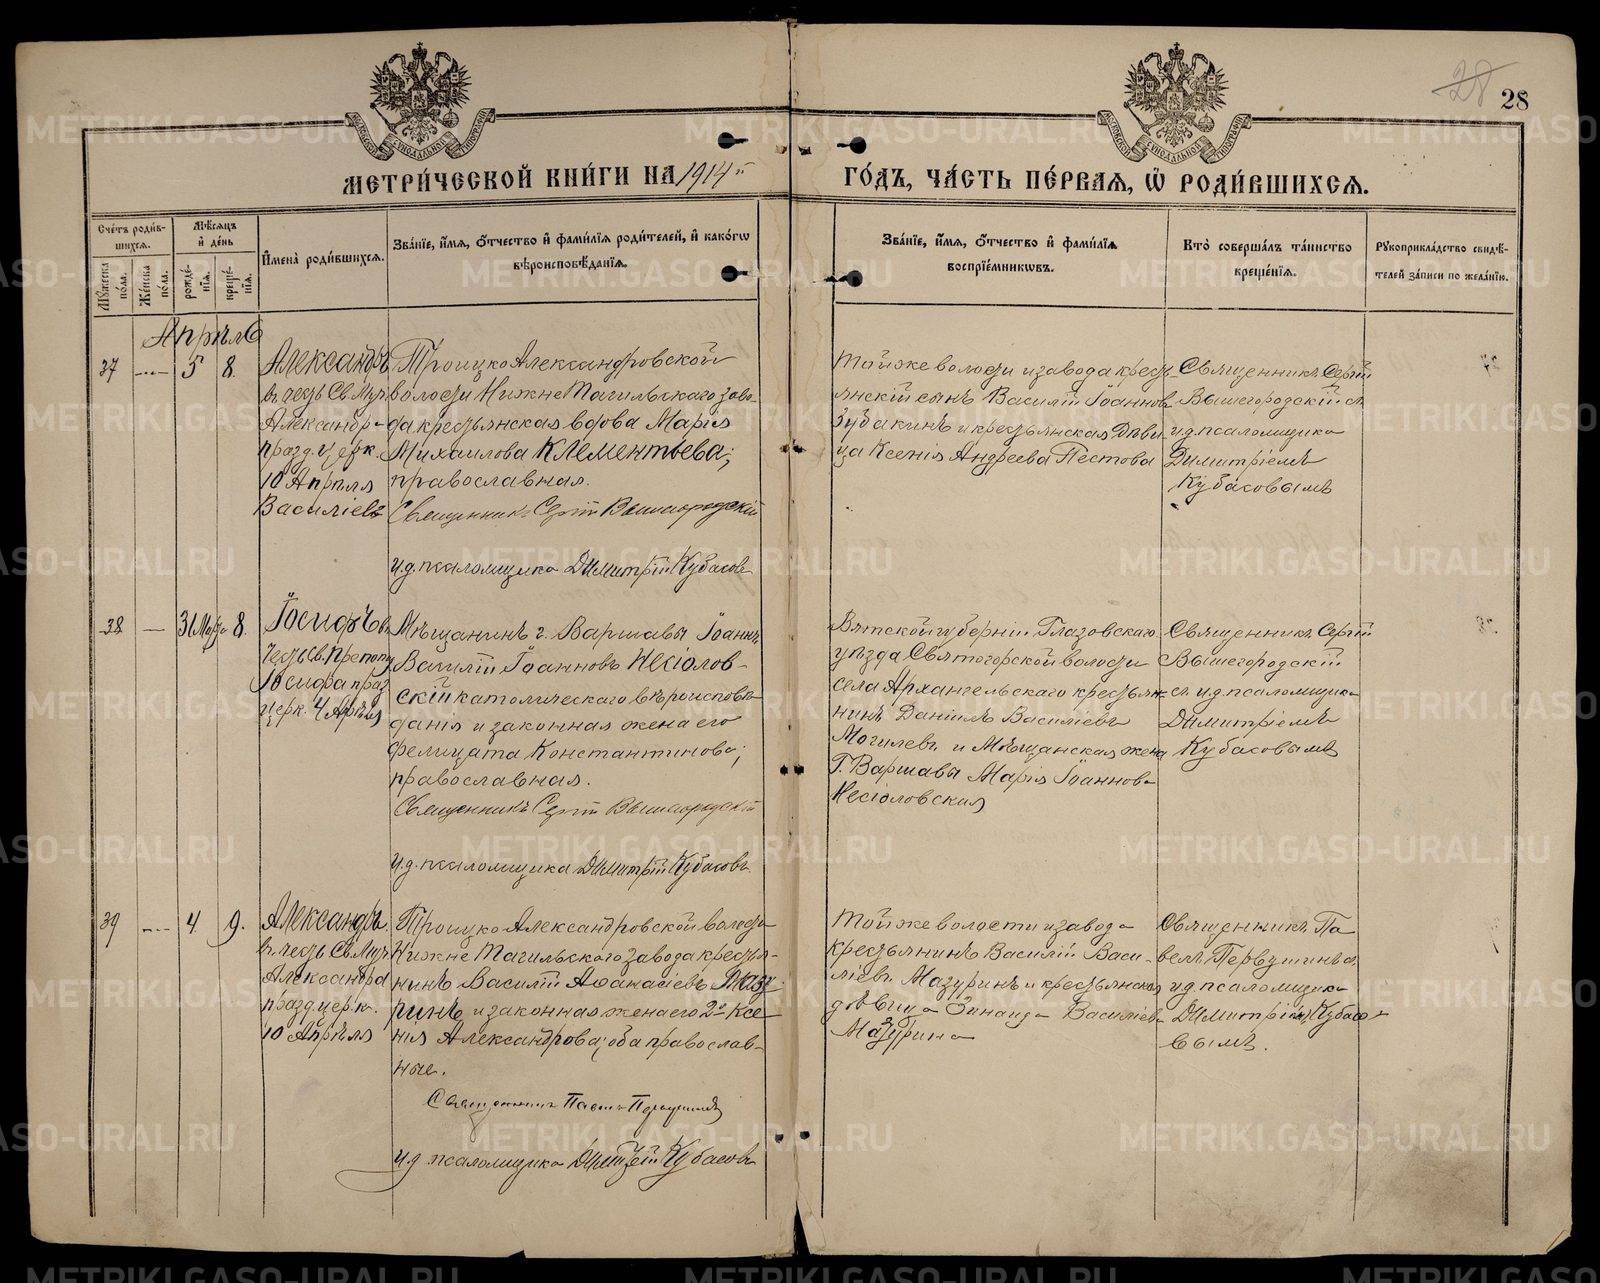 28
28
МЕТРИ́ЧЕСКОЙ КНИ́ГИ НА 1914й ГО́ДЪ, ЧА́СТЬ ПЕ́РВАЯ, Ѽ РОДИ́ВШИХСЯ.
Сче́тъ роди́в-
шихся.
Мѣ́сяцъ
и҆ де́нь
Му́жеска
по́ла.
Же́нска
по́ла.
рожде́-
нїя.
креще́-
нїя.
И҆мена̀ роди́вшихся.
Зва́нїе, и҆́мя, ѻ҆́тчество и҆ фами́лїя роди́телей, и҆ како́гѡ
вѣроисповѣ́данїя.
Зва́нїе, и҆́мя, ѻ҆́тчество и҆ фами́лїя
воспрїе́мниковъ.
Кто̀ соверша́лъ та́инство
креще́нїя.
Рꙋкоприкла́дство свидѣ́-
телей за́писи по жела́нїю.
Апрѣль
37 — 5 8.
Александръ
въ честь Св. Муч
Александр-
празд. церк.
10 Апрѣля
Василіевъ
Троицко Александровской
волости Нижне Тагильскаго заво-
да крестьянская вдова Марія
Михаилова Клементьева;
православная.
Священникъ Сергій Вышегородскій
и.д. псаломщика Димитрій Кубасовъ
Той же волости и завода кресть-
янскій сынъ Василій Іоанновъ
Зубакинъ и крестьянская дѣви-
ца Ксенія Андреева Пестова
Священникъ Сергій
Вышегородскій съ
и.д. псаломщика
Димитріемъ
Кубасовымъ
38 — 31 Марта 8.
Іосифъ въ
честь св. Препод
Іосифа праз
церк. 4 Апрѣля
Мѣщанинъ г. Варшавы Іоаннъ
Василій Іоанновъ Несіолов-
скій католическаго вѣроисповѣ-
данія и законная жена его
Фелицата Константинова;
православная.
Священникъ Сергій Вышегородскій
и.д. псаломщика Димитрій Кубасовъ
Вятской губерніи Глазовскаго
уѣзда Святогорской волости
села Архангельскаго крестья-
нинъ Даніилъ Василіевъ
Могилевъ и Мѣщанская жена
Г. Варшавы Марія Іоаннова
Несіоловская
Священникъ Сергій
Вышегородскій
съ и.д. псаломщика
Димитріемъ
Кубасовымъ
39 — 4 9.
Александръ
въ честь Св. Муч
Александра
празд. церк.
10 Апрѣля
Троицко Александровской волости
Нижне Тагильскаго завода кресть-
нинъ Василій Аѳанасіевъ Мазу-
ринъ и законная жена его 2я Ксе-
нія Александрова; оба православ-
ные.
Священникъ Павелъ Первушинъ
и.д. псаломщика Димитрій Кубасовъ
Той же волости и завода
крестьянинъ Василій Васи-
ліевъ Мазуринъ и крестьянская
дѣвица Зинаида Василіева
Мазурина
Священникъ Па
велъ Первушинъ съ
и.д. псаломщика
Димитріемъ Кубасо-
вымъ.